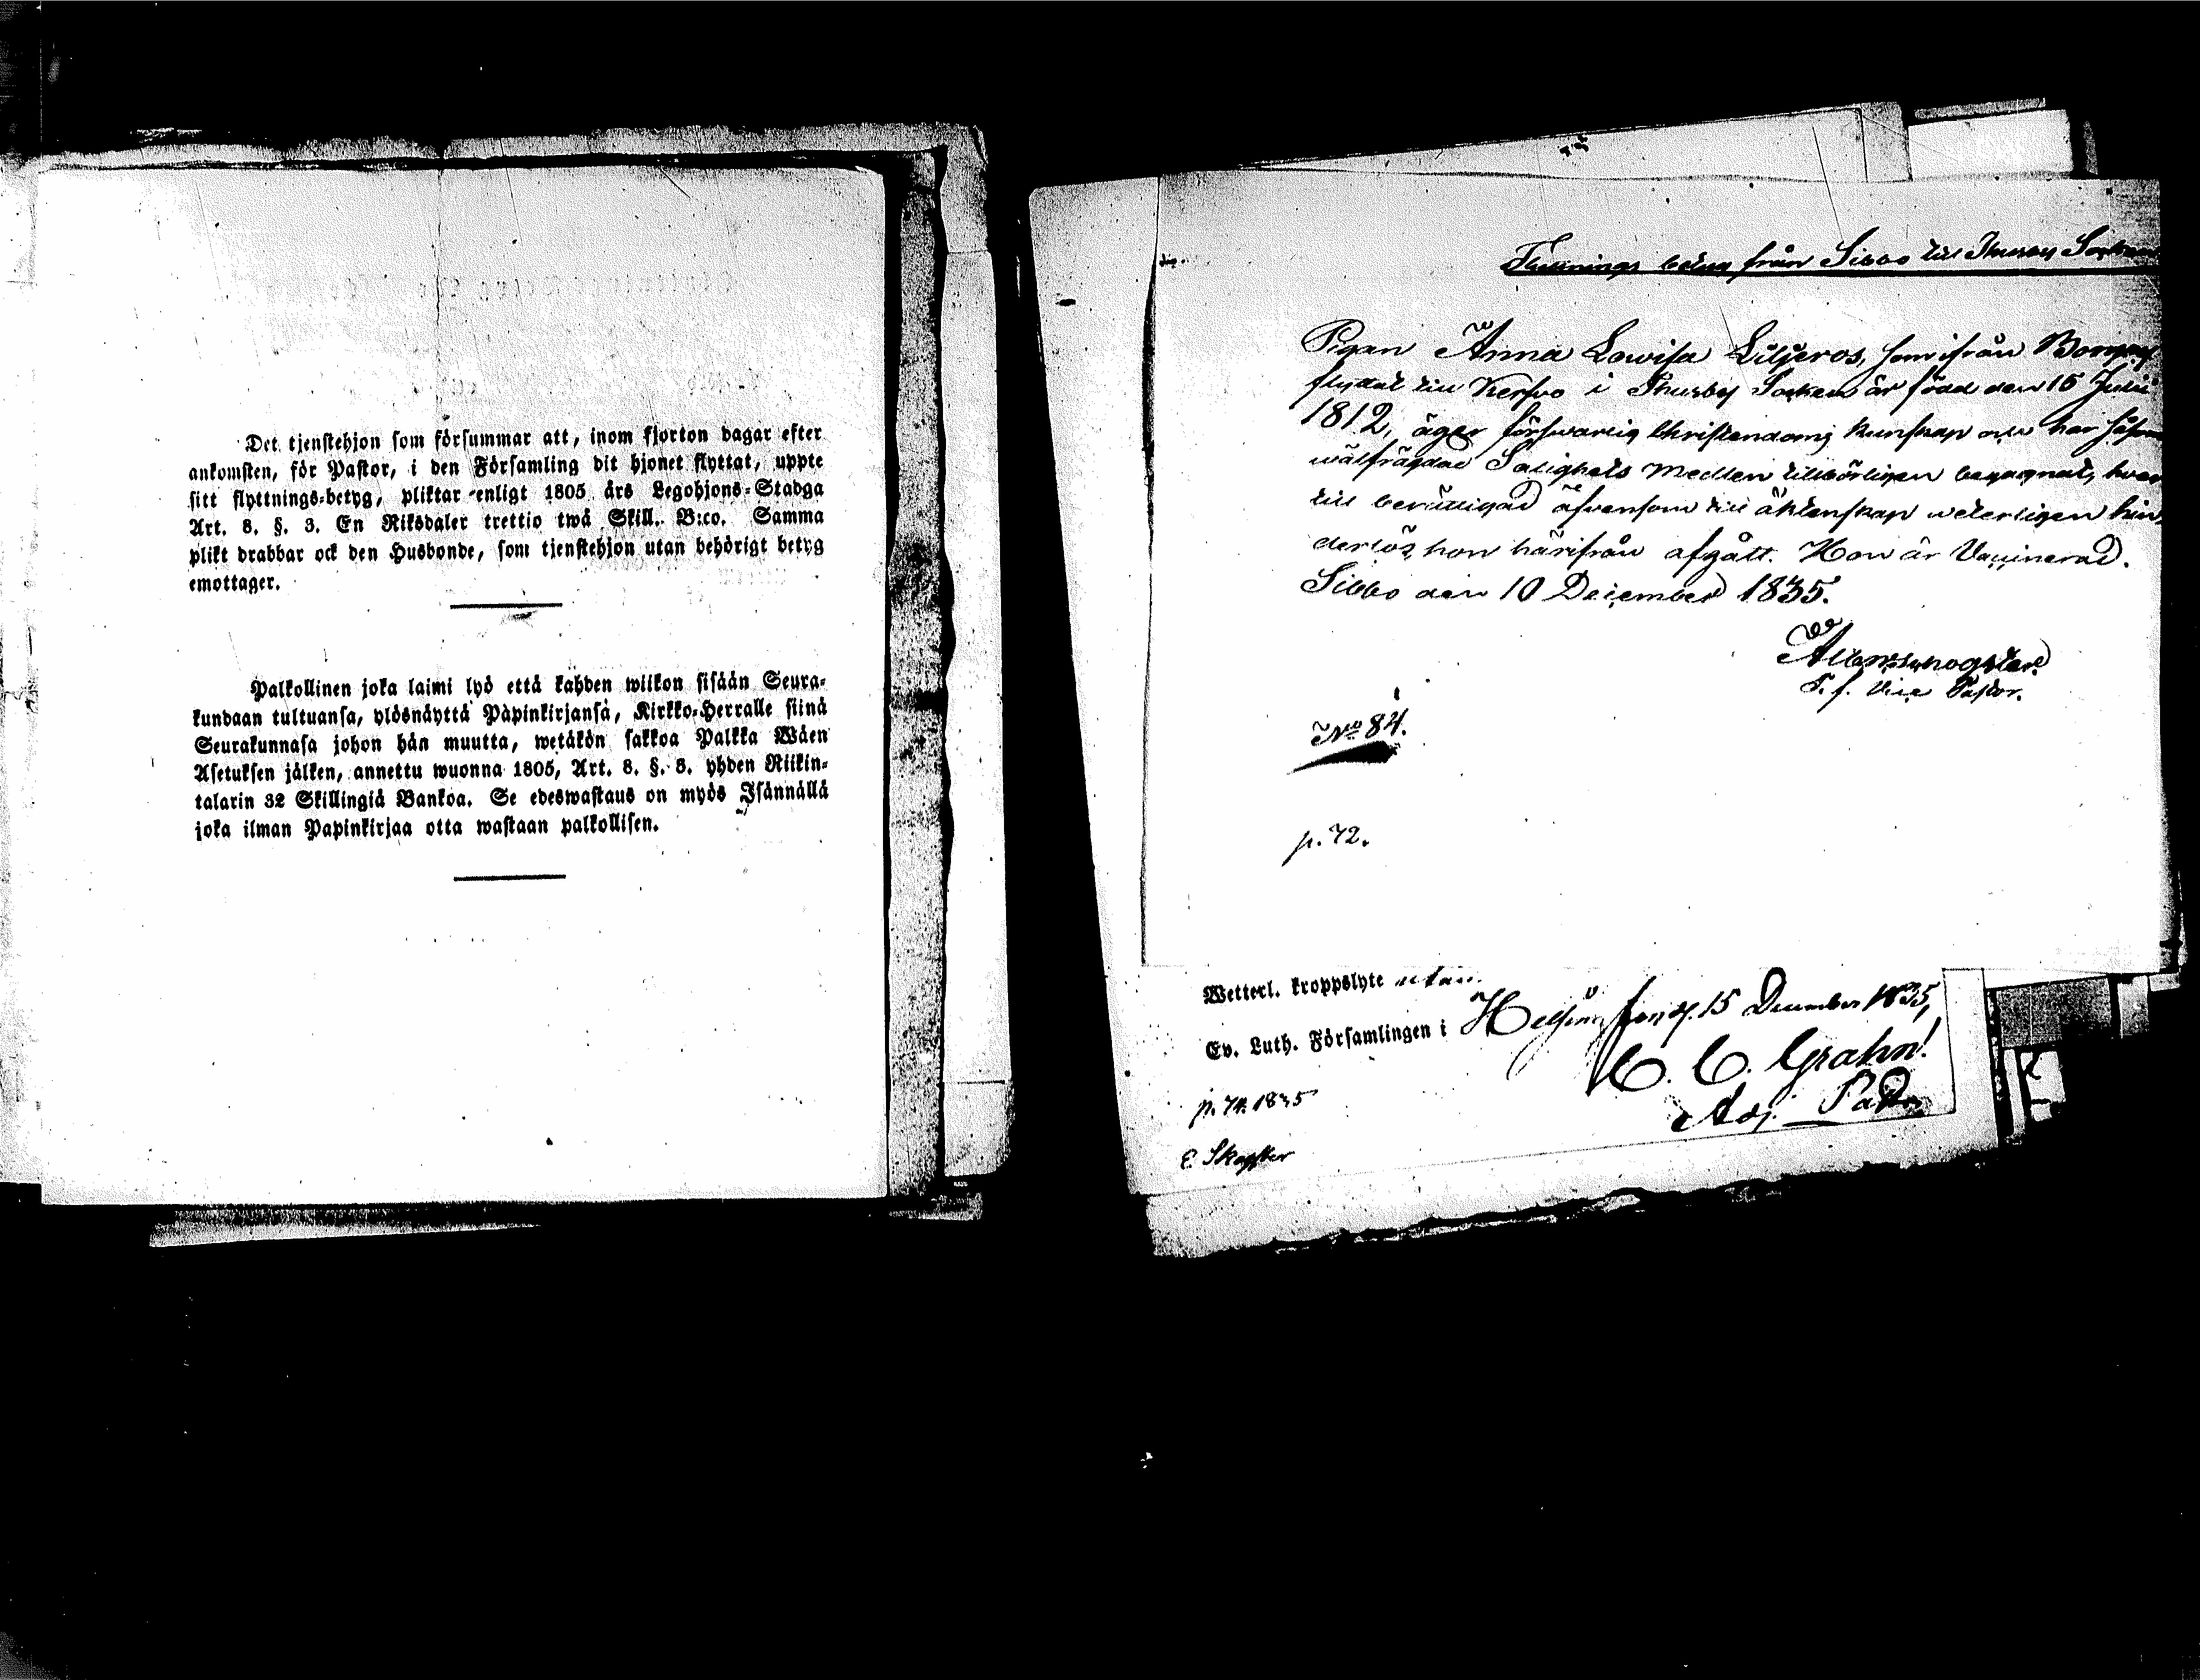 Det tjenstehjon som försummar att, inom fjorton dagar efter
ankomsten, för Pastor, i den Församling dit hjonet flyttat, uppte
sitt flyttnings-betyg, pliktar enligt 1805 års Legohjons-Stadga
Art. 8. §. 3. En Riksdaler trettio twå Skill. B:co. Samma
plikt drabbar ock den Husbonde, som tjenstehjon utan behörigt betyg
emottager.
Palkollinen joka laimi lyö että kahden wiikon sisään Seura-
kundaan tultuansa, ylösnäyttä Papinkirjansa, Kirkko-Herralle siinä
Seurakunnasa johon hän muutta, wetäkön sakkoa Palkka Wäen
Asetuksen jälken, annettu wuonna 1805, Art. 8. §. 3. yhden Riikin-
talarin 32 Skillingiä Bankoa. Se edeswastaus on myös Isännällä
joka ilman Papinkirjaa otta wastaan palkollisen.
Flyttnings betyg från Sibbo till Thusby Socken
Pigan Anna Lowisa Liljeros, som ifrån
flyttat till Kerfvo i Thusby Socken är född den 15 Julii
1812, äger förswarlig Christendoms kunskap och har såsom
wälfrägdad Salighets Medlen tillbörligen begagnat, hvar
till berättigad äfvensom till äktenskap weterligen hin
derlös hon härifrån afgått. Hon är Vaccinerad.
Sibbo den 10 December 1835.
T. f. Vice Pastor.
No 84.
p. 72.
Wetterl. kroppslyte utan.
Ev. Luth. Församlingen i Helsing d. 15 December 1835,
C. C. Grahn.
Adj. Past.
p. 74. 1835